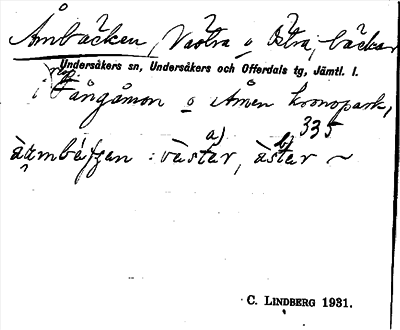 Åmbäcken, Västra o Östra, bäckar
Undersåkers sn, Undersåkers och Offerdals tg, Jämtl. l.
i Fångåmon o Åmen kronopark,
a) b) 335
àrmbéʃꞩen : vàstar, àstar ~
C. LINDBERG 1931.